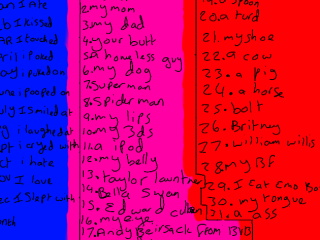 an I ate
b I kissed
AR I touched
ril i poked
ay, i puked on
une i pooped on
uly I smiled at
g i laughed at
pt i ayed with
ct i hate
ov I love
ec I slept with
2. my mom
3. my dad
4. your butt
5. a homeless guy
6. my dog
7. Superman
8. Spider man
9. my lips
10. my 3ds
11. a ipod
12. my belly
13. taylor lawntner
14. Bella Swan
15. Edward cullen
16. my eye
17. Andy Beirsack from BVB
19. a spoon
20. a turd
21. my shoe
22. a cow
23. a pig
24. a horse
25. bolt
26. Britney
27. william wills
28. my BF
29. I cat Emo Bo
30. my tongue
31. a ass